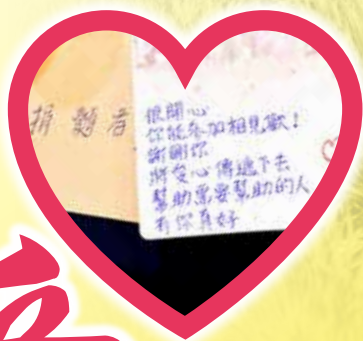 捐 者
很開心
你能參加相見歡!
謝謝你
將愛心傳遞下去
幫助需要幫助的人
有你真好